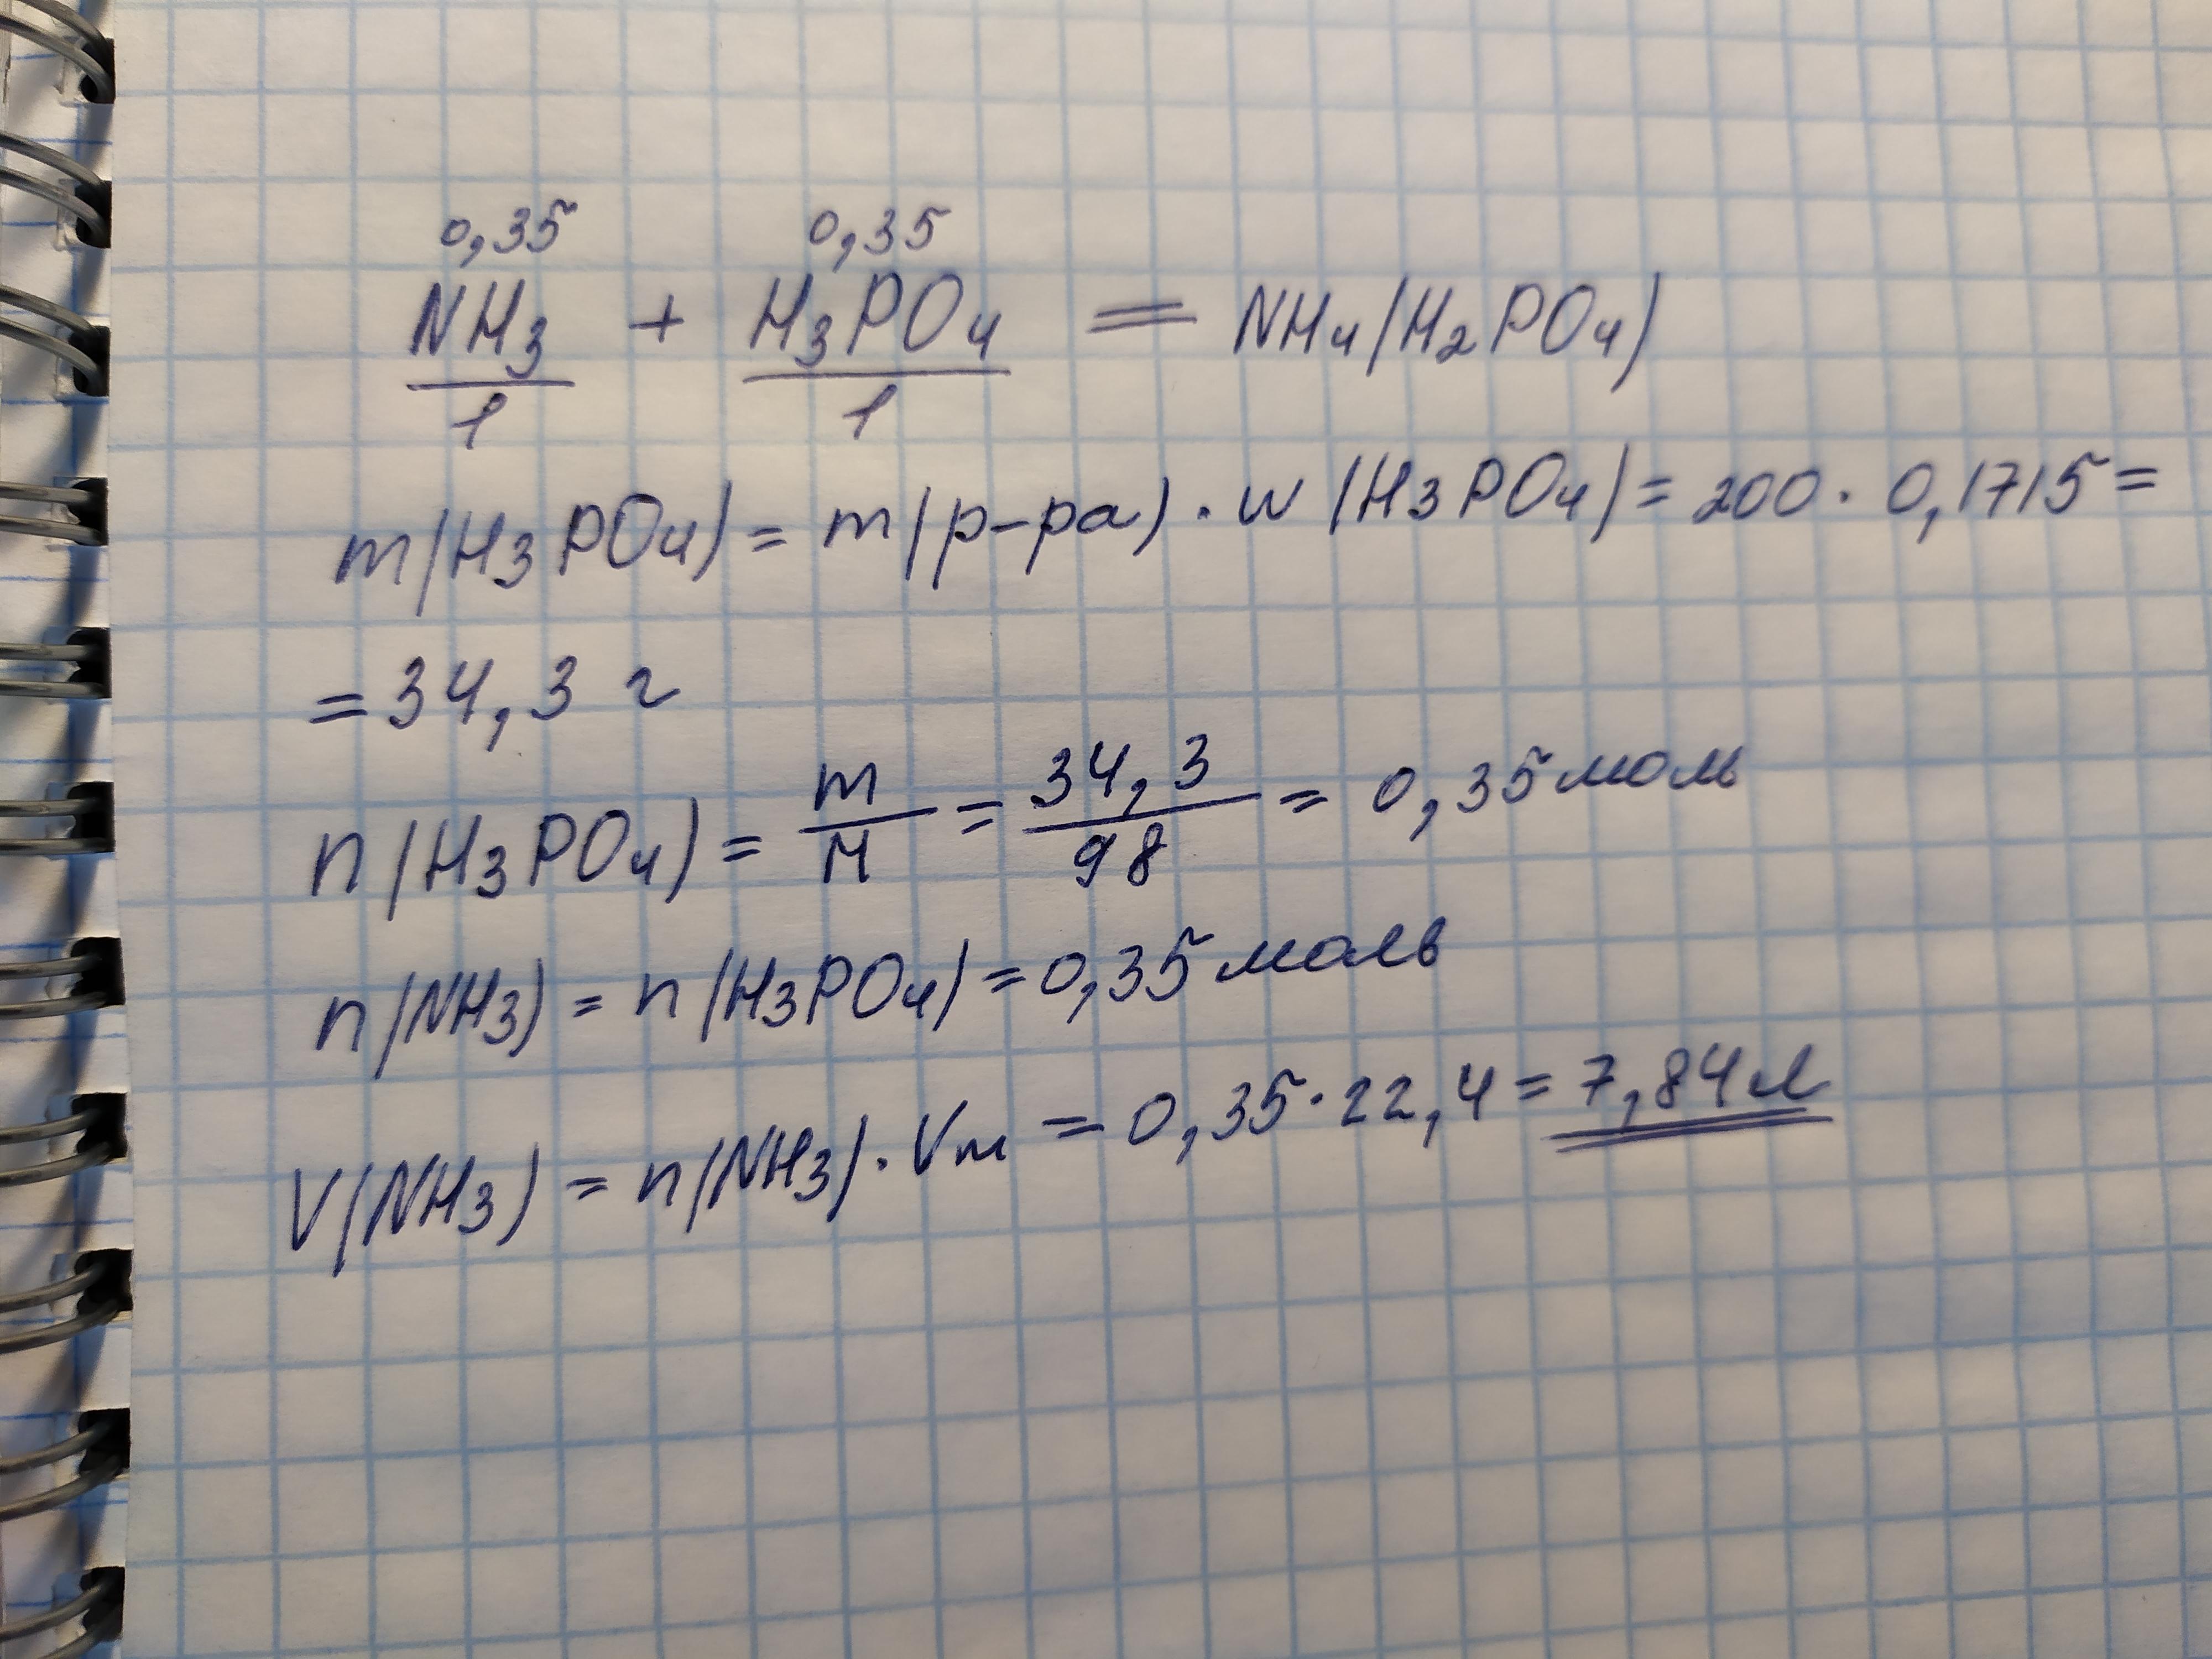 0,35 0,35
NH3 + H3PO4 = NH4(H2PO4)
1 1
m(H3PO4) = m(р-ра) · w (H3PO4) = 200 · 0,1715 =
= 34,3 г
n(H3PO4) = m/M = 34,3/98 = 0,35 моль
n(NH3) = n(H3PO4) = 0,35 моль
V(NH3) = n(NH3) · Vм = 0,35 · 22,4 = 7,84 л